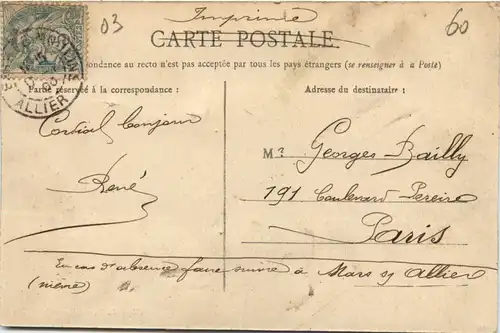 03
Imprimé
60
CARTE POSTALE
ondance au recto n'est pas acceptée par tous les pays étrangers (se renseigner à a Poste)
Partie réservée à la correspondance :
Adresse du destinataire :
ALLIER
Cordial bonjour
René
Mr Georges Bailly
191 Boulevard Pereire
Paris
En cas d'absence faire suivre à Mars s/ Allier
(nièvre)